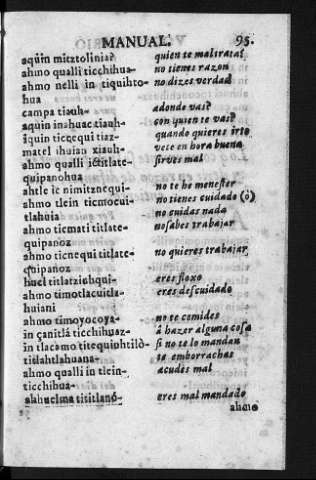 MANUAL. 95.
aquin mitztolinia? quien te maltrata?
ahmo qualli ticchihua- no tienes razon
ahmo nelli in tiquihto- no dizes verdad
hua
campa tiauh- adonde vas?
aquin inahuac tiauh- con quien te vas?
iquin ticnequi tiaz- quando quieres irte
matel ihuian xiauh- vete en hora buena
ahmo qualli ictitlate- sirves mal
quipanohua
ahtle ic nimitznequi- no te he menester
ahmo tlein ticmocui- no tienes cuidado (ó)
tlahuia no cuidas nada
ahmo ticmati titlate- no sabes trabajar
quipanoz
ahmo ticnequi titlate- no quieres trabajar
quipanoz
huel titlatziuhqui- eres floxo
ahmo timotlacuitla- eres descuidado
huiani
ahmo timoyocoya- no te comides
in çanitlà ticchihuaz- à hazer alguna cosa
in tlacamo titequiuhtilò- si no te lo mandan
titlahtlahuana- te emborrachas
ahmo qualli in tlein- acudes mal
ticchihua-
tititlanó- eres mal mandado
ahmo